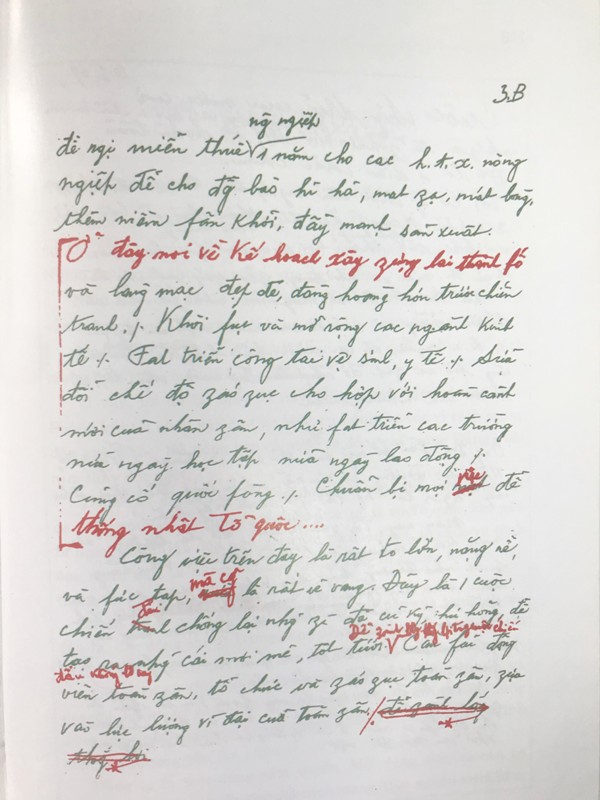 3.B
nôg ngiệp
đề ngị miễn thuế √ 1 năm cho các h.t.x. nông
ngiệp để cho đồg bào hỉ hả, mát zạ, mát lòng,
thêm niềm fấn khởi, đẩy mạnh sản xuất.
Ở đây nói về kế hoạch xây zựng lại thành fố
và làng mạc đẹp đẽ, đàng hoàng hơn trước chiến
tranh. /. Khôi fục và mở rộng các ngành kinh
tế /. Fát triển công tác vệ sinh, y tế /. Sửa
đổi chế độ záo zục cho hợp với hoàn cảnh
mới của nhân zân, như fát triển các trường
nửa ngày học tập nửa ngày lao động /.
việc
Củng cố quốc fòng /. Chuẩn bị mọi để
thống nhất Tổ quốc....
Công việc trên đây là rất to lớn, nặng nề,
mà cũ
và fức tạp, là rất vẻ vang. Đây là 1 cuộc
đấu
chiến chống lại nhữg gì đã cũ kỹ, hư hỏng, để
Để zành thắg lợi
tạo ra nhữg cái mới mẻ, tốt tươi. √ Cần fải động
viên toàn zân, tổ chức và záo zục toàn zân, zựa
vào lực lượng vĩ đại của toàn zân.
để zành lấy
thắg lợi